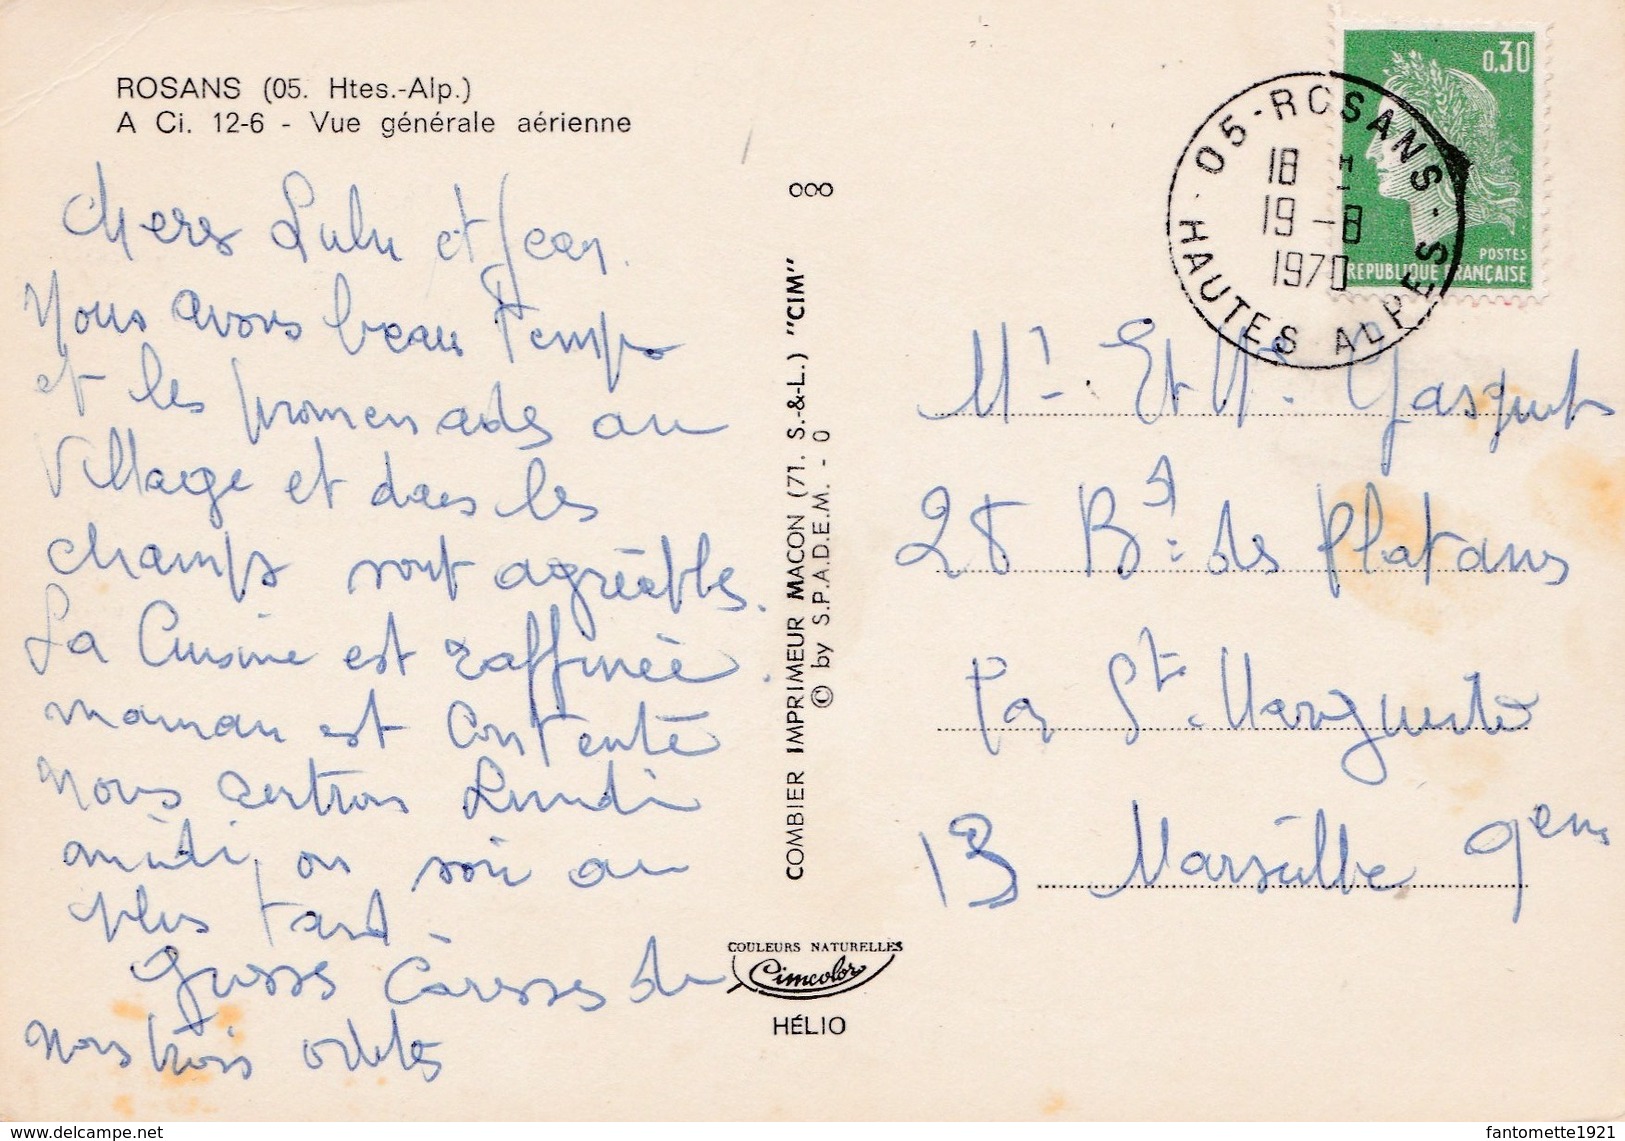 ROSANS (05. Htes.-Alp.)
A Ci. 12-6 - Vue générale aérienne
Cheres Lulu et Jean.
Nous avons beau Temps
et les promenades au
Village et dans les
champs sont agréables.
La Cuisine est raffinée.
maman est Contente
Nous rentrons Lundi
midi, ou soir au
plus tard.
Grosses Caresses de
Nous trois
COMBIER IMPRIMEUR MACON (71. S.-&-L.) "CIM"
© by S.P.A.D.E.M. - 0
COULEURS NATURELLES
Cimcolor
HÉLIO
0,30
POSTES
REPUBLIQUE FRANÇAISE
05-ROSANS
18 H
19-8
1970
HAUTES ALPES
Mr. Et Me. Gasquet
28 Bd: des Platanes
Par Ste. Marguerite
13 Marseille 9em
fantomette1921
delcampe.net